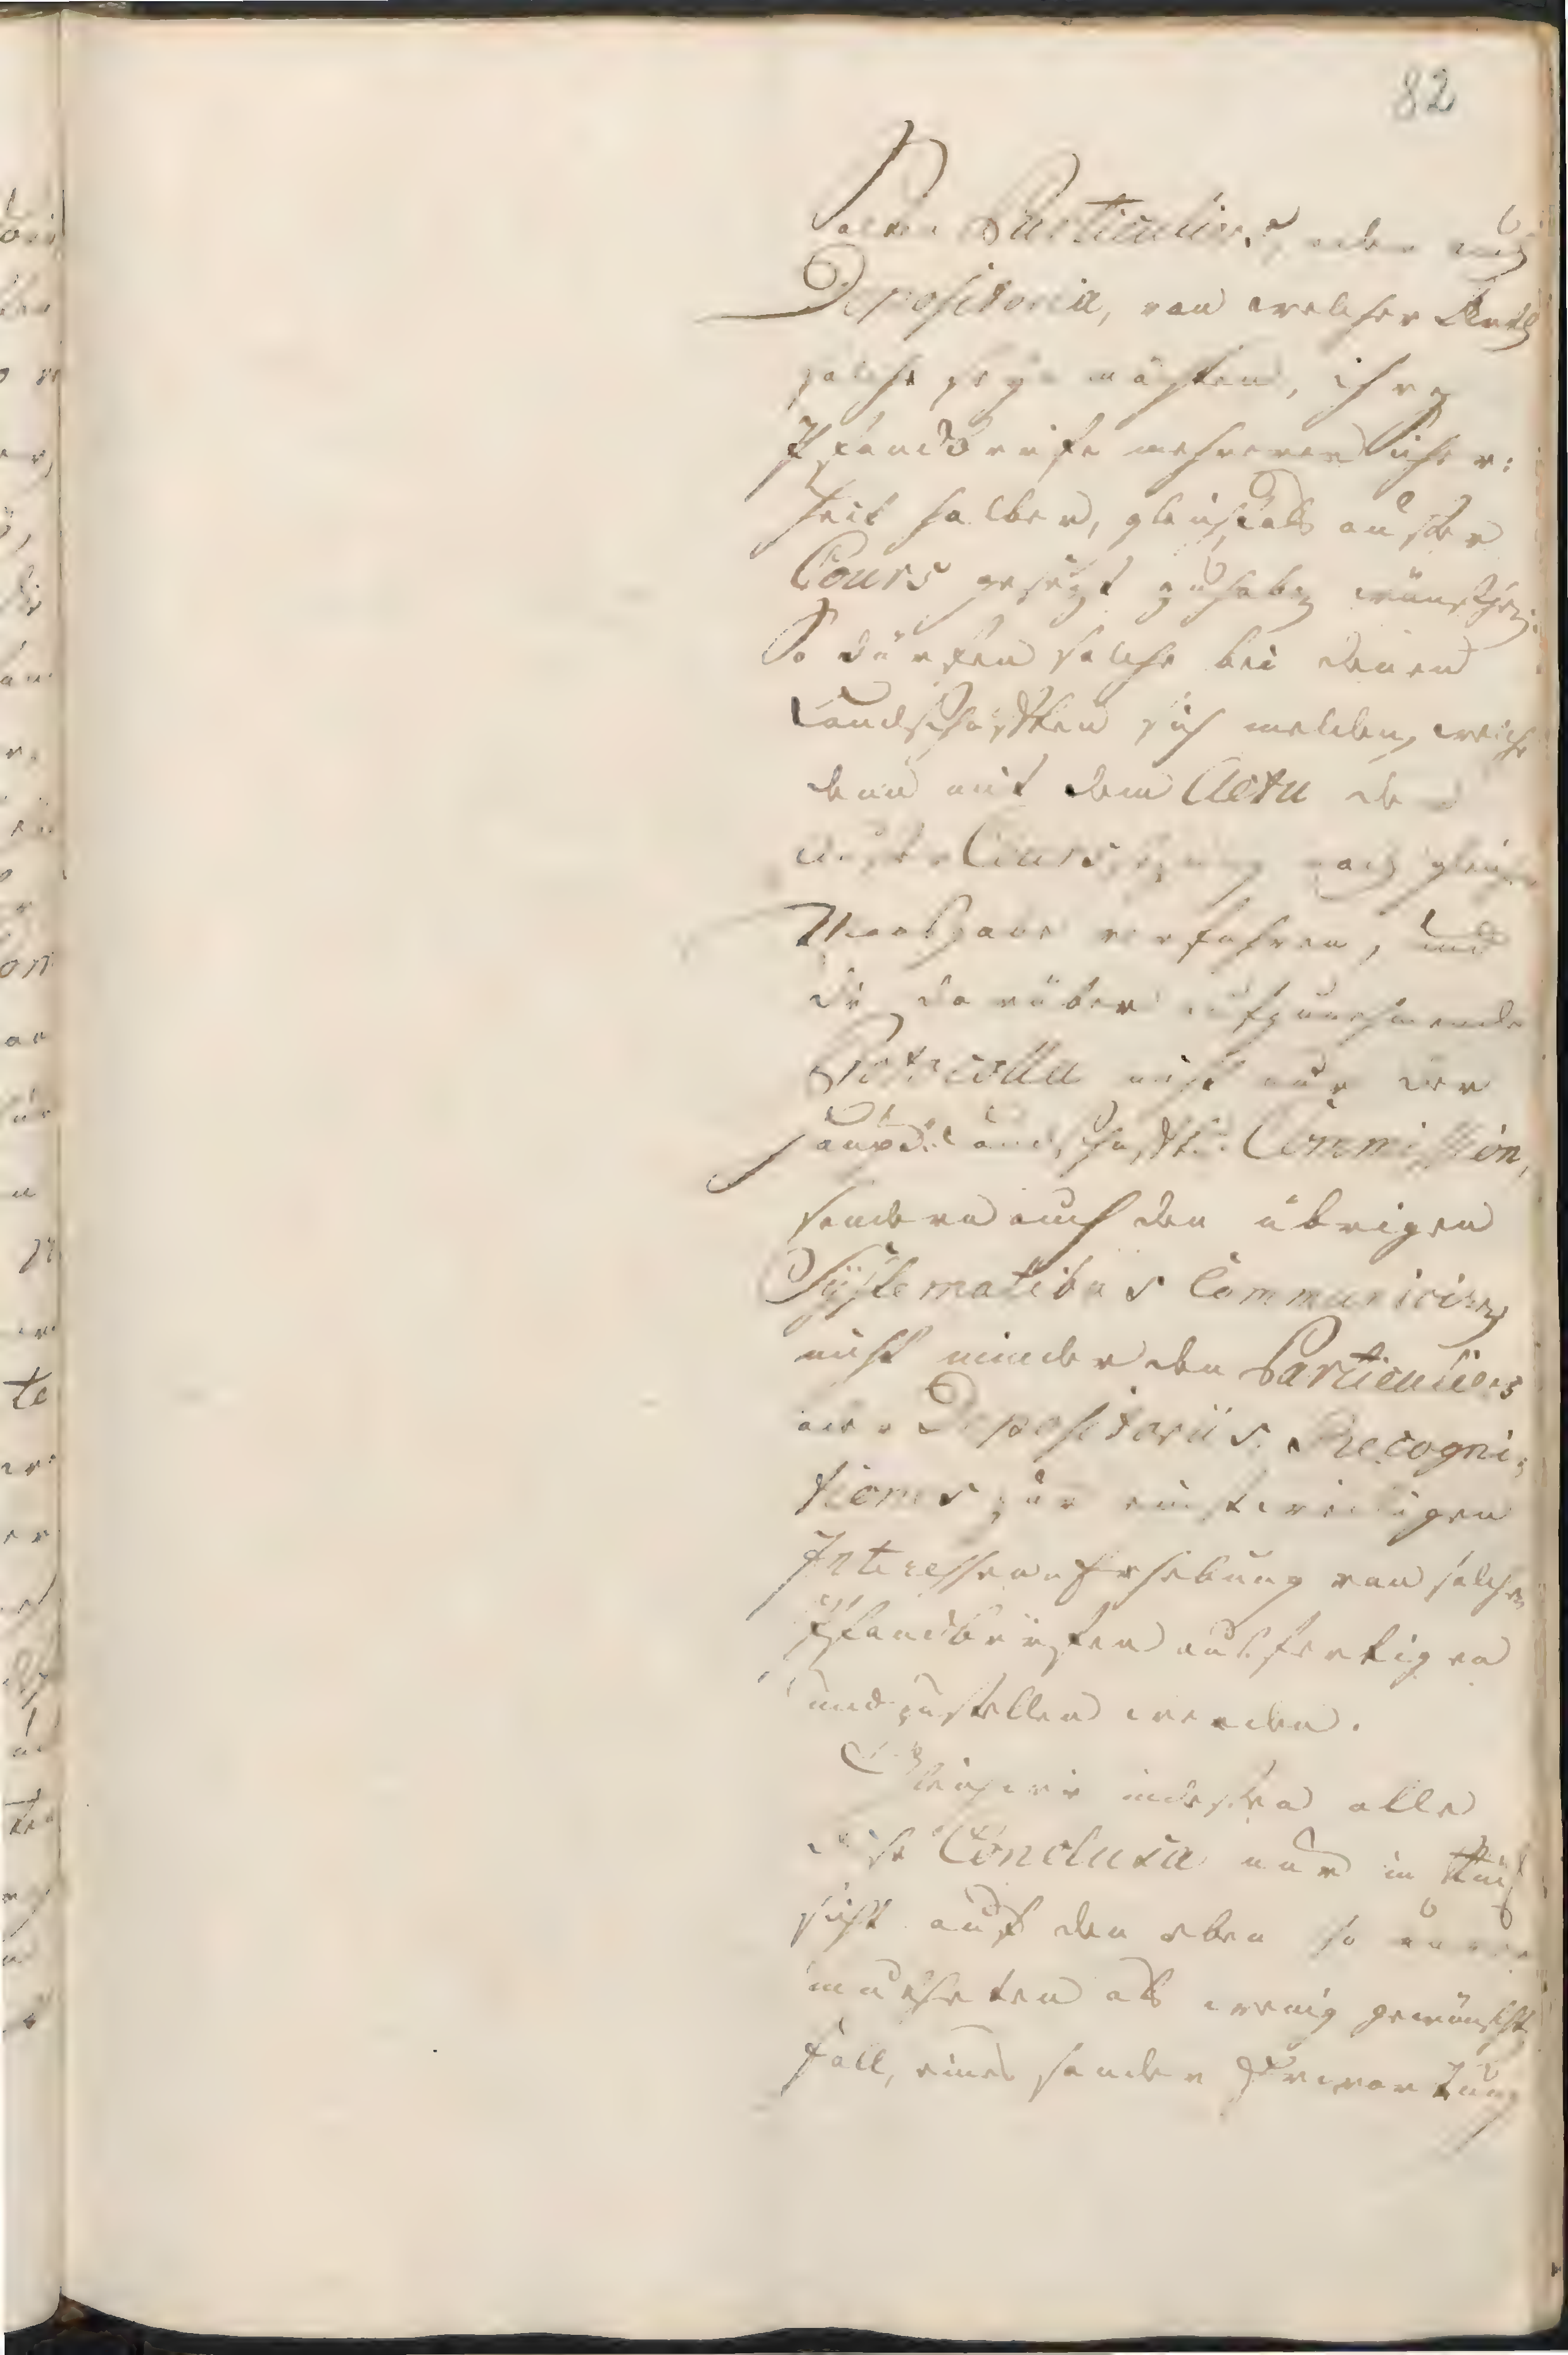 82
Sollten Particuliers, oder auch
Depositoria, von welcher Arth
solche seyn möchten, ihre
Pfandbriefe mehrerer Sicher:
heit halber, gleichfals außer
Cours gesezt zu haben wünschen:
So dürfen solche bei denen
Landschafften sich melden, welche
dann mit dem Actu der
außer Courssezung nach gleicher
Maasgabe verfahren, und
die darüber aufzunehmende
Protocolla nicht nur der
Haupt-Landschafftl. Commission,
sondern auch den übrigen
Systematibus Communiciren
nicht minder den Particuliers
oder Depositoriis Recogni:
tiones zur einstweiligen
Interessen Erhebung von solchen
Pfandbriefen ausfertigen
und zustellen werden.
Gleichwie indessen alle
diese Conclusa nur in Rück
sicht auf den eben so unver
mutheten als wenig gewünscht
Fall, eines sonder Erwartung